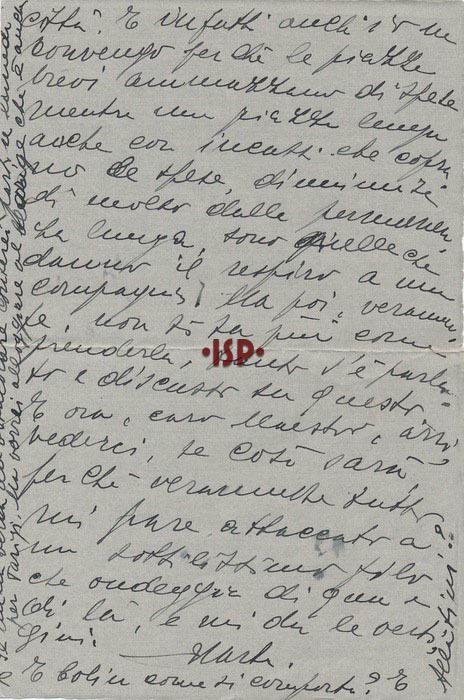 costà? E infatti anch'io ne
convengo perchè le piazze
brevi ammazzano di spese
mentre una piazza lunga
anche con incassi che copra
no le spese, diminuite
di molto dalla permanen
za lunga, sono quelle che
danno il respiro a una
compagnia. Ma poi, veramen
te, non si sa più come
prenderla, tanto s'è parla-
to e discusso su questo.
E ora, caro Maestro, arri
vederci, se così sarà,
perchè veramente tutto
mi pare attaccato a
un sottilissimo filo
che ondeggia di qua e
di là, e mi dà le verti
gini.
Marta
E Colin come si comporta? E
·ISP·